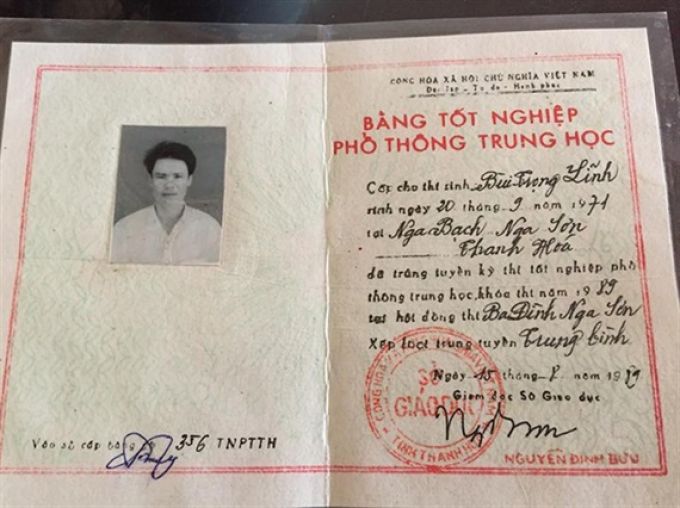 Vào sổ cấp bằng số 356 TNPTTH
CỘNG HÒA XÃ HỘI CHỦ NGHĨA VIỆT NAM
Độc lập - Tự do - Hạnh phúc
BẰNG TỐT NGHIỆP
PHỔ THÔNG TRUNG HỌC
Cấp cho thí sinh Bùi Trọng Lĩnh
sinh ngày 20 tháng 9 năm 1971
tại Nga Bạch Nga Sơn
Thanh Hoá
đã trúng tuyển kỳ thi tốt nghiệp phổ
thông trung học, khóa thi năm 1989
tại hội đồng thi Ba Đình Nga Sơn
Xếp loại trúng tuyển Trung bình
Ngày 15 tháng 8 năm 1989
Giám đốc Sở Giáo dục
SỞ
GIÁO DỤC
TỈNH THANH HÓA
NGUYỄN ĐÌNH BƯU